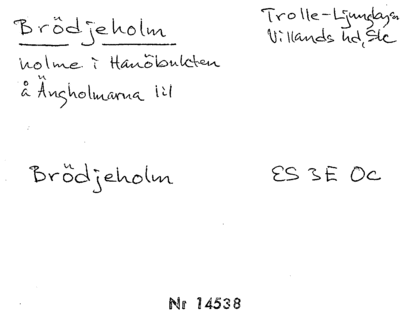 Brödjeholm
Trolle-Ljungby sn
Villands hd, Skåne
holme i Hanöbukten
å Ängholmarna
Brödjeholm
ES 3E Oc
Nr 14538